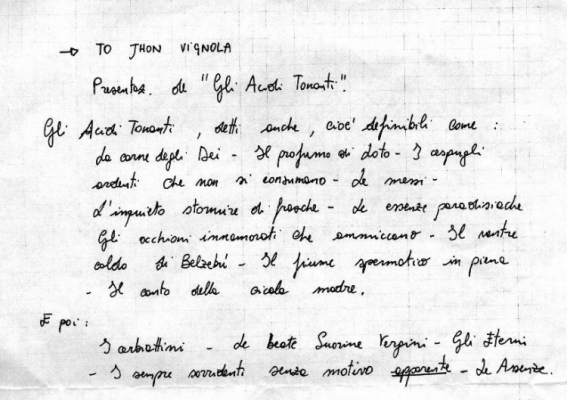 → TO JHON VIGNOLA
Presentaz. de "Gli Acidi Tonanti".
Gli Acidi Tonanti, detti anche, cioe' definibili come :
La carne degli Dei - Il profumo di Loto - I cespugli
ardenti che non si consumano - Le messi -
L'inquieto stormire di frasche - Le essenze paradisiache
Gli occhioni innamorati che ammiccano - Il ventre
caldo di Belzebú - Il fiume spermatico in piena
- Il canto della cicala madre.
E poi :
I carbottimi - Le beate Suorine Vergini - Gli Eterni
- I sempre sorridenti senza motivo apparente - Le Assenze.